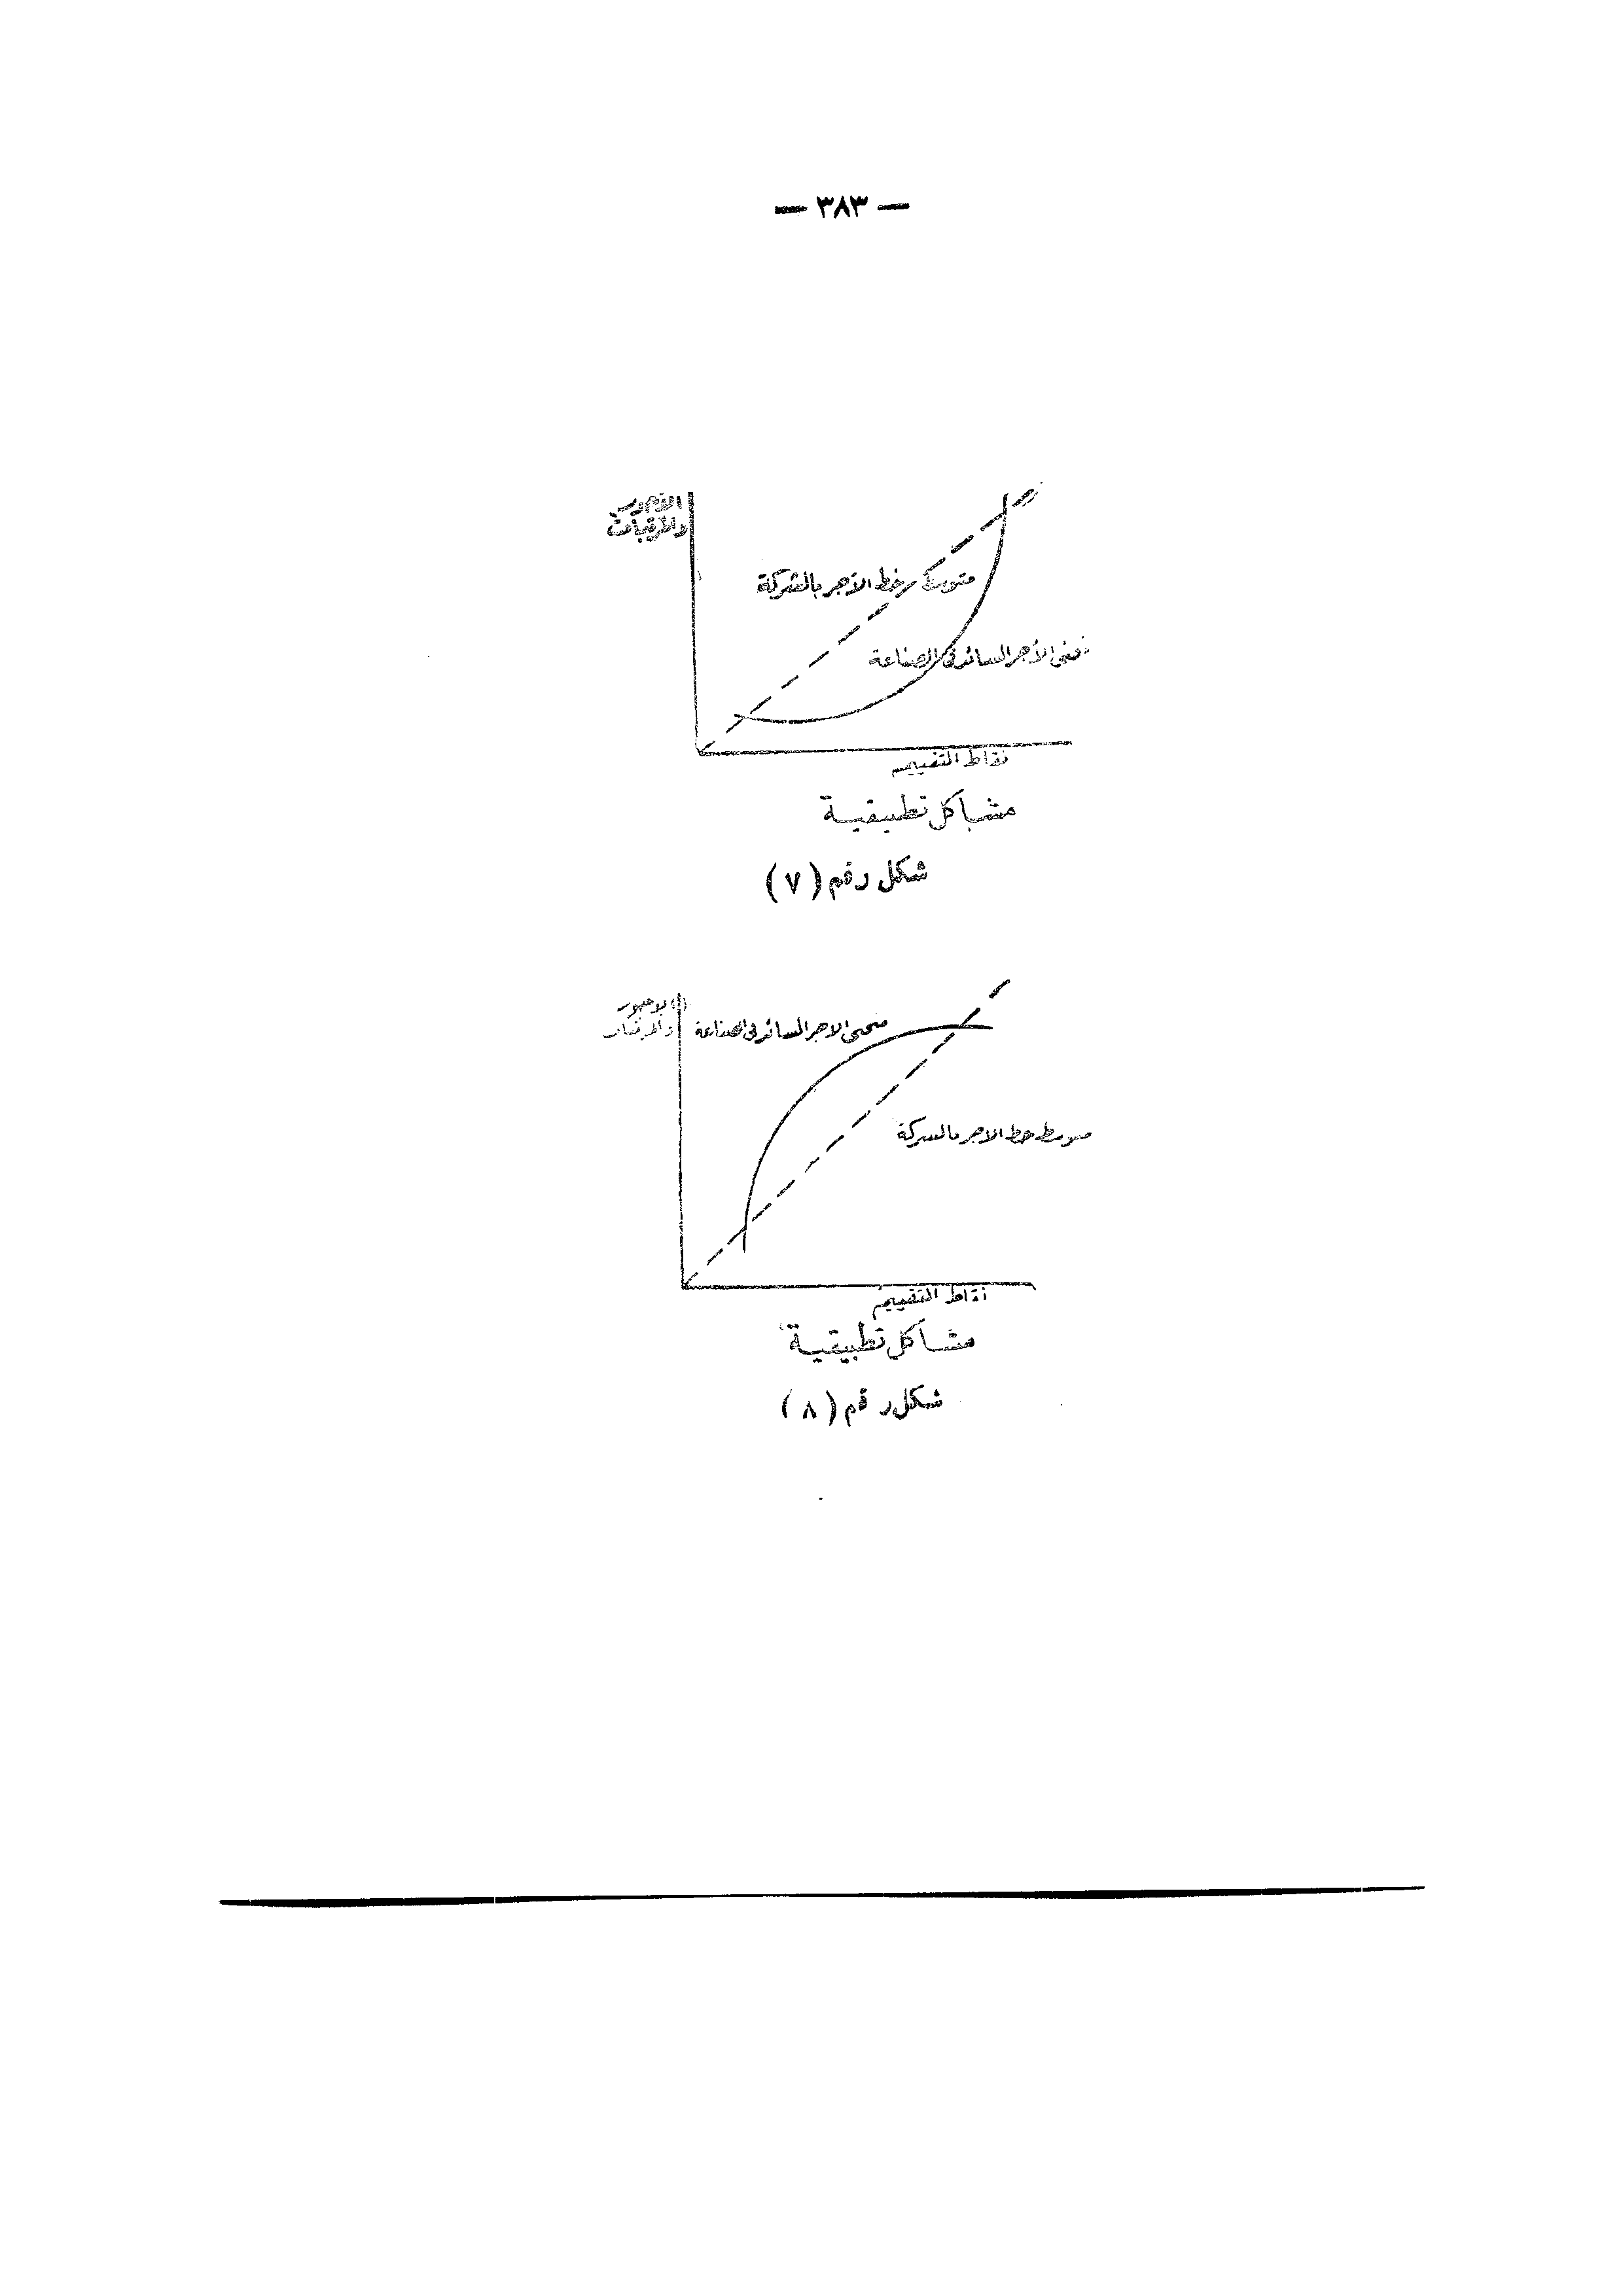 — ٣٨٣ —
الأجور
والمرتبات
متوسط خط الأجر بالشركة
منحنى الأجر السائد فى الصناعة
نقاط التقييم
مشاكل تطبيقية
شكل رقم (٧)
الاجور
والمرتبات
منحنى الاجر السائد فى الصناعة
متوسط خط الاجر بالشركة
نقاط التقييم
مشاكل تطبيقية
شكل رقم (٨)